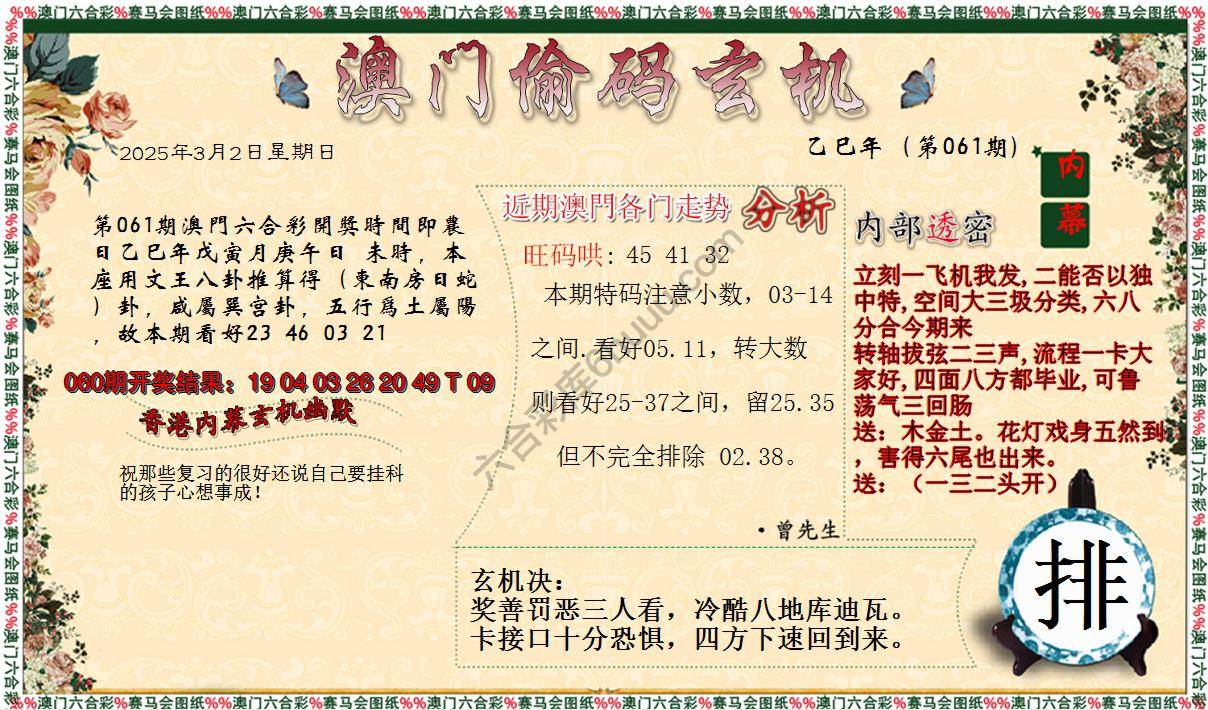 %%澳门六合彩%赛马会图纸%%澳门六合彩%赛马会图纸%%澳门六合彩%赛马会图纸%%澳门六合彩%赛马会图纸%%澳门六合彩%赛马会图纸%%澳门六合彩%赛马会图纸%%
澳门偷码玄机
2025年3月2日星期日
乙巳年（第061期）
第061期澳門六合彩開獎時間即農
日乙巳年戊寅月庚午日 未時，本
座用文王八卦推算得（東南房日蛇
）卦，咸屬巽宫卦，五行爲土屬陽
，故本期看好23 46 03 21
060期开奖结果：19 04 03 26 20 49 T 09
香港内幕玄机幽默
祝那些复习的很好还说自己要挂科
的孩子心想事成！
近期澳門各门走势 分析
旺码哄：45 41 32
本期特码注意小数，03-14
之间.看好05.11，转大数
则看好25-37之间，留25.35
但不完全排除 02.38。
·曾先生
内幕
内部透密
立刻一飞机我发,二能否以独
中特,空间大三圾分类,六八
分合今期来
转轴拔弦二三声,流程一卡大
家好,四面八方都毕业,可鲁
荡气三回肠
送：木金土。花灯戏身五然到
，害得六尾也出来。
送：（一三二头开）
玄机决：
奖善罚恶三人看，冷酷八地库迪瓦。
卡接口十分恐惧，四方下速回到来。
排